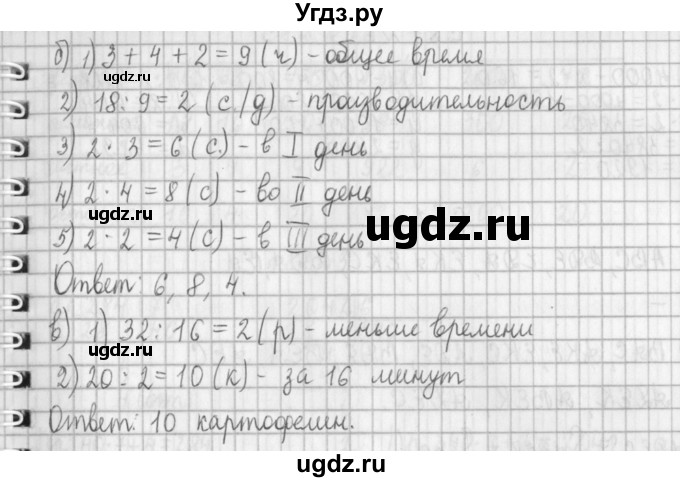 Угдз.ру
б) 1) 3 + 4 + 2 = 9 (ч) - общее время
ugdz.ru
2) 18 : 9 = 2 (с/д) - производительность
3) 2 · 3 = 6 (с.) - в I день
4) 2 · 4 = 8 (с) - во II день
ugdz.ru
ugdz.ru
5) 2 · 2 = 4 (с) - в III день
Ответ: 6, 8, 4.
в) 1) 32 : 16 = 2 (р) - меньше времени
ugdz.ru
ugdz.ru
2) 20 : 2 = 10 (к) - за 16 минут
Ответ: 10 картофелин.
ugdz.ru